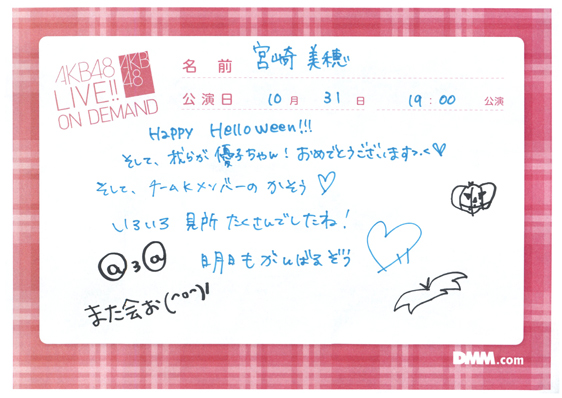 AKB48
LIVE!!
ON DEMAND
AKB
48
名前 宮崎 美穂
公演日 10月 31日 19:00 公演
Happy Helloween!!!
そして、我らが優子ちゃん!おめでとうございまずっ♡
そして、チームKメンバーの かそう ♡
いろいろ 見所 たくさんでしたね!
明日も がんばるぞう
@3@
また会お(^o^)/
DMM.com